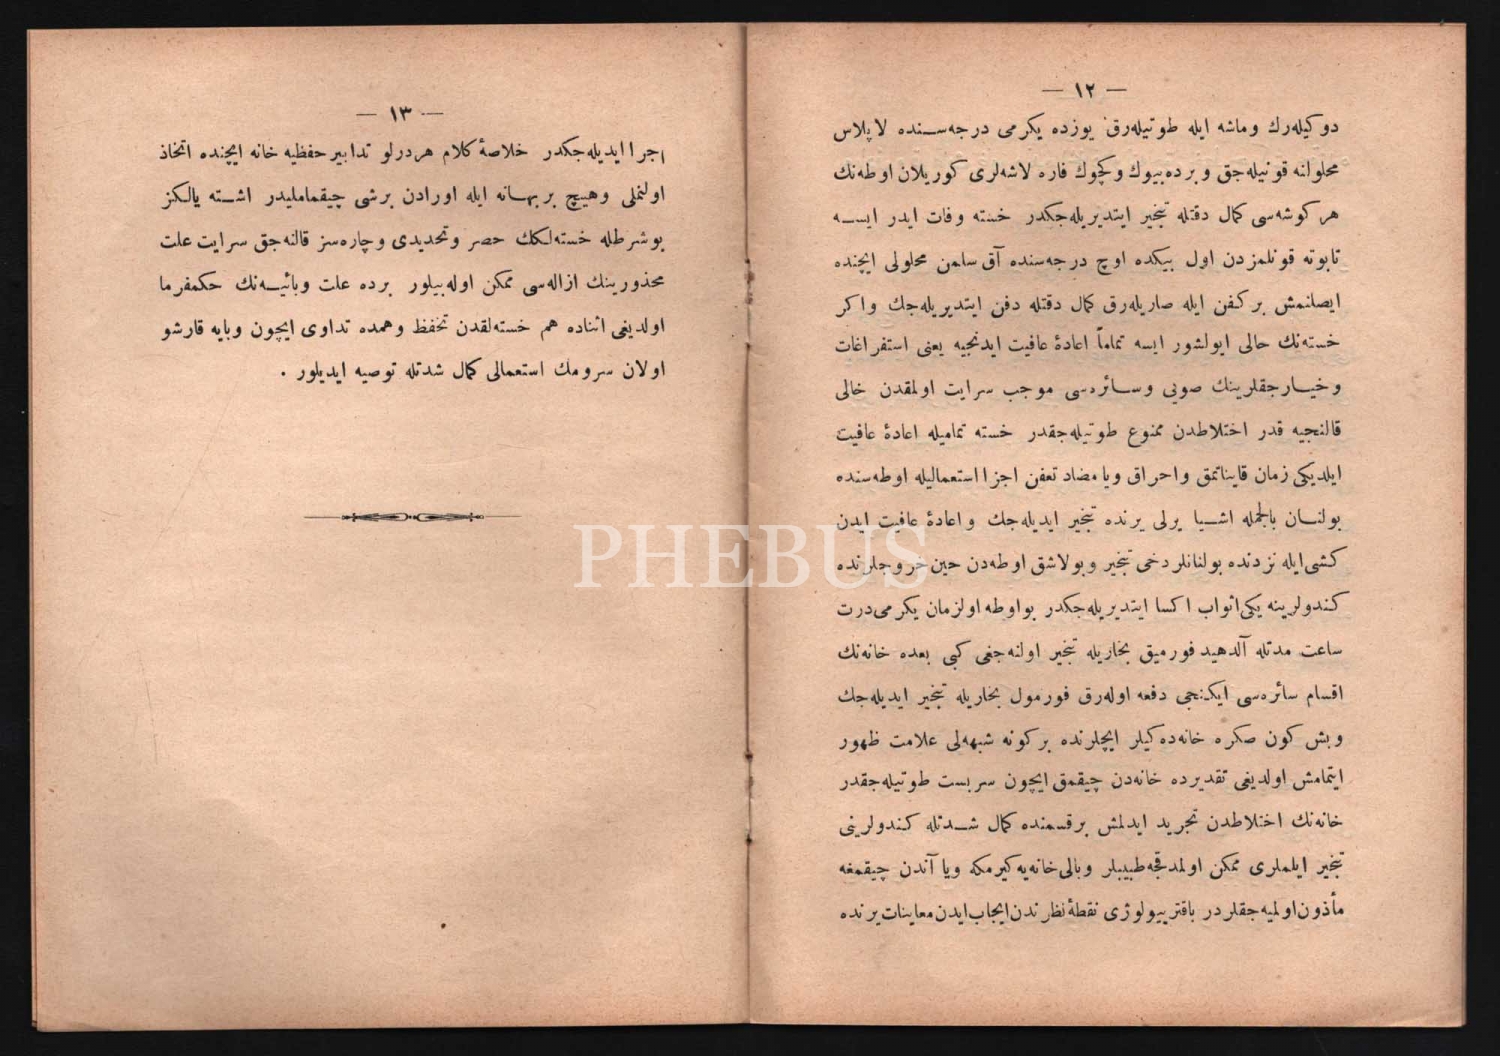 — ١٢ —
دوکیله‌رك وماشه ایله طوتیله‌رق یوزده یکرمی درجه‌سنده لاپلاس
محلولنه قونیله‌جق و برده بیوك وکچوك فاره لاشه‌لری کوریلان اوطه‌نك
هر کوشه‌سی کمال دقتله تبخیر ایتدیریله‌جکدر خسته وفات ایدر ایسه
تابوته قونلمزدن اول بیکده اوچ درجه‌سنده آق سلمن محلولی ایچنده
ایصلانمش بر کفن ایله صاریله‌رق کمال دقتله دفن ایتدیریله‌جك واکر
خسته‌نك حالی ایولشور ایسه تماماً اعادهٔ عافیت ایدنجیه یعنی استفراغات
وخیارجقلرینك صویی وسائره‌سی موجب سرایت اولمقدن خالی
قالنجیه قدر اختلاطدن ممنوع طوتیله‌جقدر خسته تمامیله اعادهٔ عافیت
ایلدیکی زمان قایناتمق واحراق ویا مضاد تعفن اجزا استعمالیله اوطه‌سنده
بولنان بالجمله اشیا یرلی یرنده تبخیر ایدیله‌جك واعادهٔ عافیت ایدن
کشی ایله نزدنده بولنانلر دخی تبخیر وبولاشق اوطه‌دن حین خروجلرنده
کندولرینه یکی اثواب اکسا ایتدیریله‌جکدر بو اوطه اولزمان یکرمی درت
ساعت مدتله آلدهید فورمیق بخاریله تبخیر اولنه‌جغی کبی بعده خانه‌نك
اقسام سائره‌سی ایکنجی دفعه اوله‌رق فورمول بخاریله تبخیر ایدیله‌جك
وبش کون صکره خانه‌ده‌کیلر ایچلرنده بر کونه شبهه‌لی علامت ظهور
ایتمامش اولدیغی تقدیرده خانه‌دن چیقمق ایچون سربست طوتیله‌جقدر
خانه‌نك اختلاطدن تجرید ایدلمش بر قسمنده کمال شدتله کندولرینی
تبخیر ایلملری ممکن اولمدقجه طبیبلر وبالی خانه‌یه کیرمکه ویا آندن چیقمغه
مأذون اولمیه‌جقلردر باقتریولوژی نقطهٔ نظرندن ایجاب ایدن معاینات یرنده
— ١٣ —
اجرا ایدیله‌جکدر خلاصهٔ کلام هردرلو تدابیر حفظیه خانه ایچنده اتخاذ
اولنملی وهیچ بر بهانه ایله اورادن برشی چیقماملیدر اشته یالکز
بو شرطله خسته‌لکك حصر وتحدیدی وچاره‌سز قالنه‌جق سرایت علت
محذورینك ازاله‌سی ممکن اوله‌بیلور برده علت وبائیه‌نك حکمفرما
اولدیغی اثناده هم خسته‌لقدن تحفظ وهمده تداوی ایچون وبایه قارشو
اولان سرومك استعمالی کمال شدتله توصیه ایدیلور .
PHEBUS